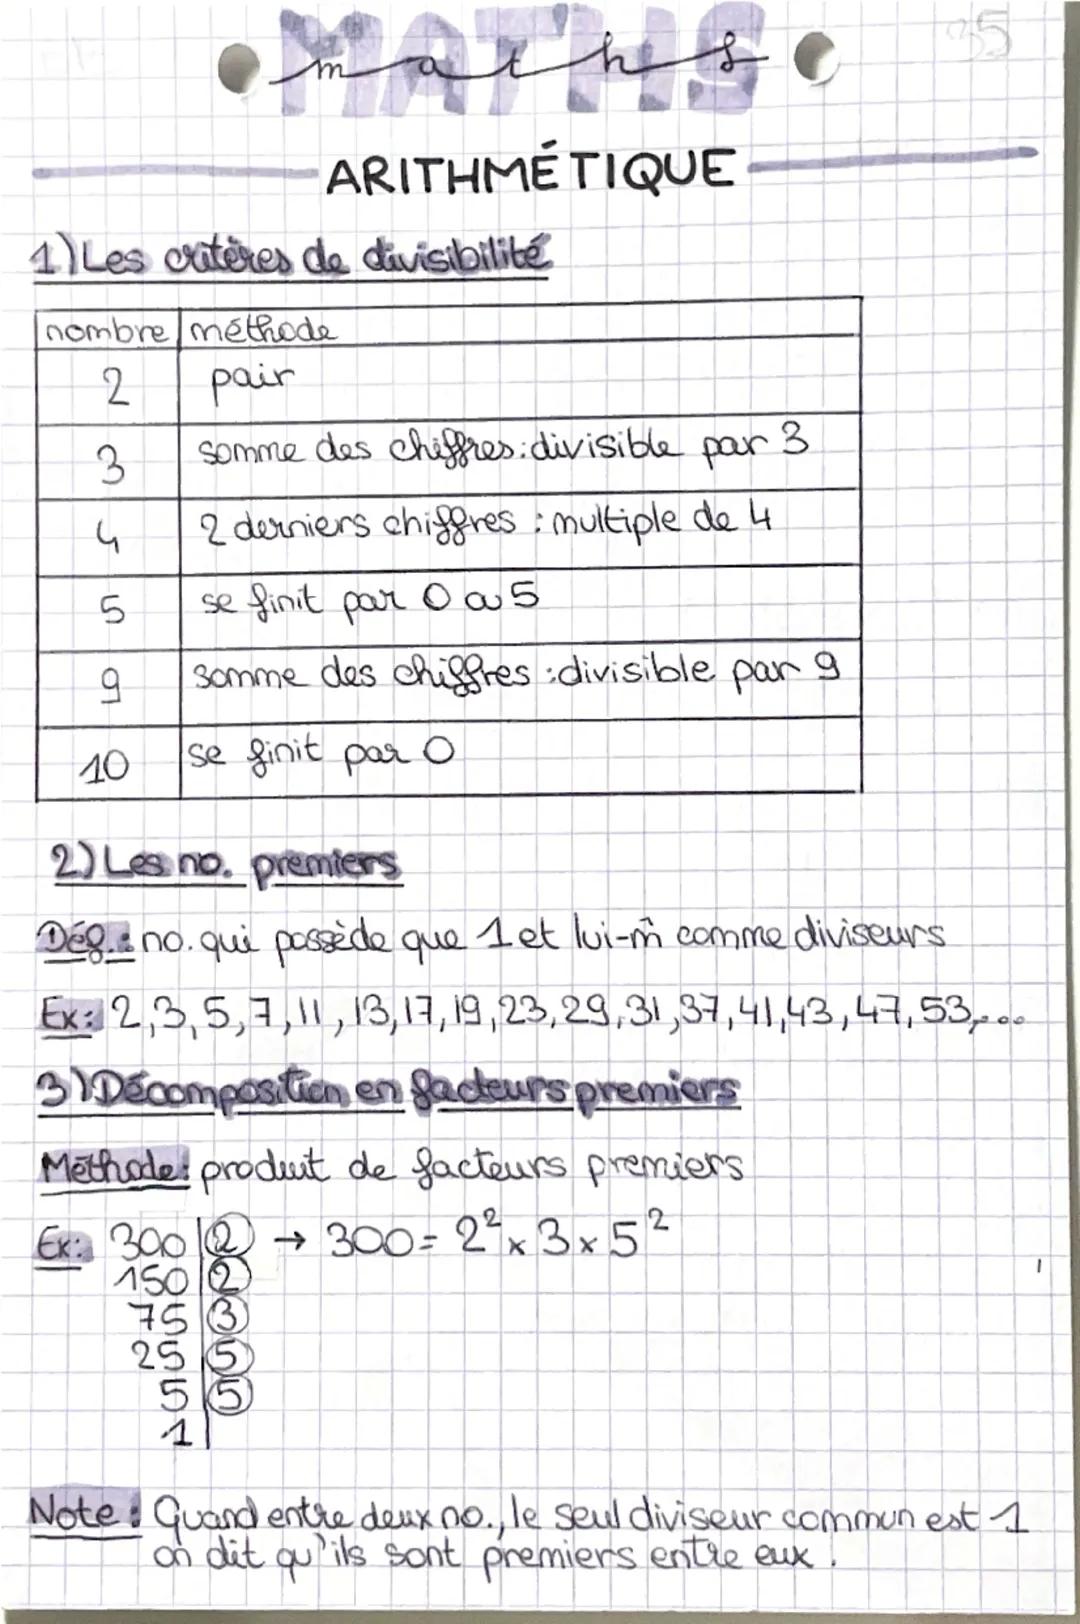 MATHS
maths
35
ARITHMÉTIQUE
1) Les critères de divisibilité
nombre méthode
2 pair
3 somme des chiffres : divisible par 3
4 2 derniers chiffres : multiple de 4
5 se finit par 0 ou 5
9 somme des chiffres : divisible par 9
10 se finit par 0
2) Les no. premiers
Déf. : no. qui possède que 1 et lui-m̂ comme diviseurs
Ex: 2,3,5,7,11,13,17,19,23,29,31,37,41,43,47,53,...
3) Décomposition en facteurs premiers
Méthode: produit de facteurs premiers
Ex: 300 | 2 → 300 = 2² x 3 x 5²
150 | 2
75 | 3
25 | 5
5 | 5
1 |
Note : Quand entre deux no., le seul diviseur commun est 1
on dit qu'ils sont premiers entre eux.